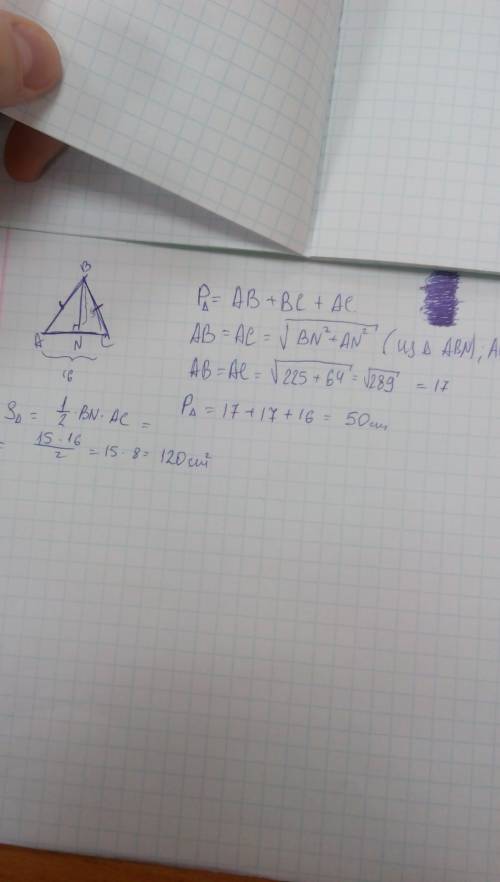 B
A N C
16
P△ = AB + BC + AC
AB = AC = √(BN² + AN²) (из △ ABN); A
AB = AC = √(225 + 64) = √289 = 17
P△ = 17 + 17 + 16 = 50 см
S△ = 1/2 · BN · AC =
= 15 · 16 / 2 = 15 · 8 = 120 см²